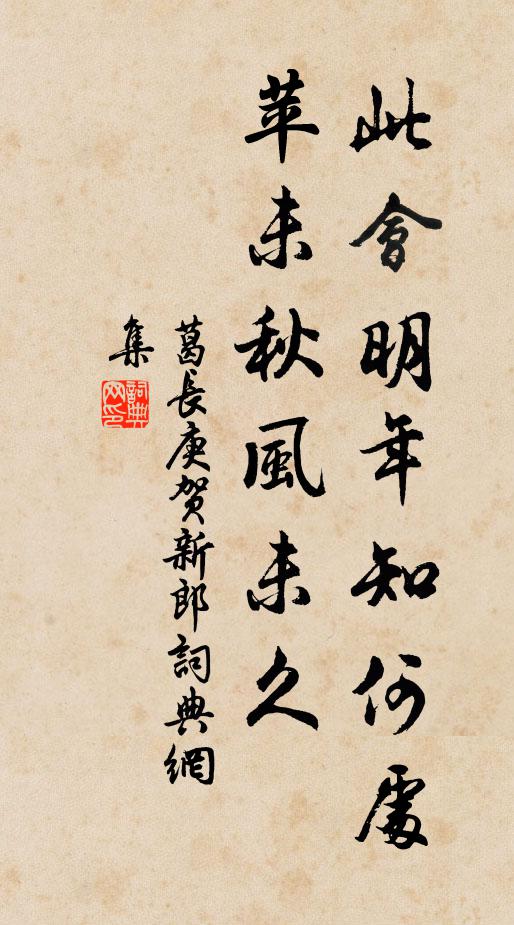 此會明年知何處
苹未秋風未久
葛長庚賀新郎詞典網
集
詞典
网印